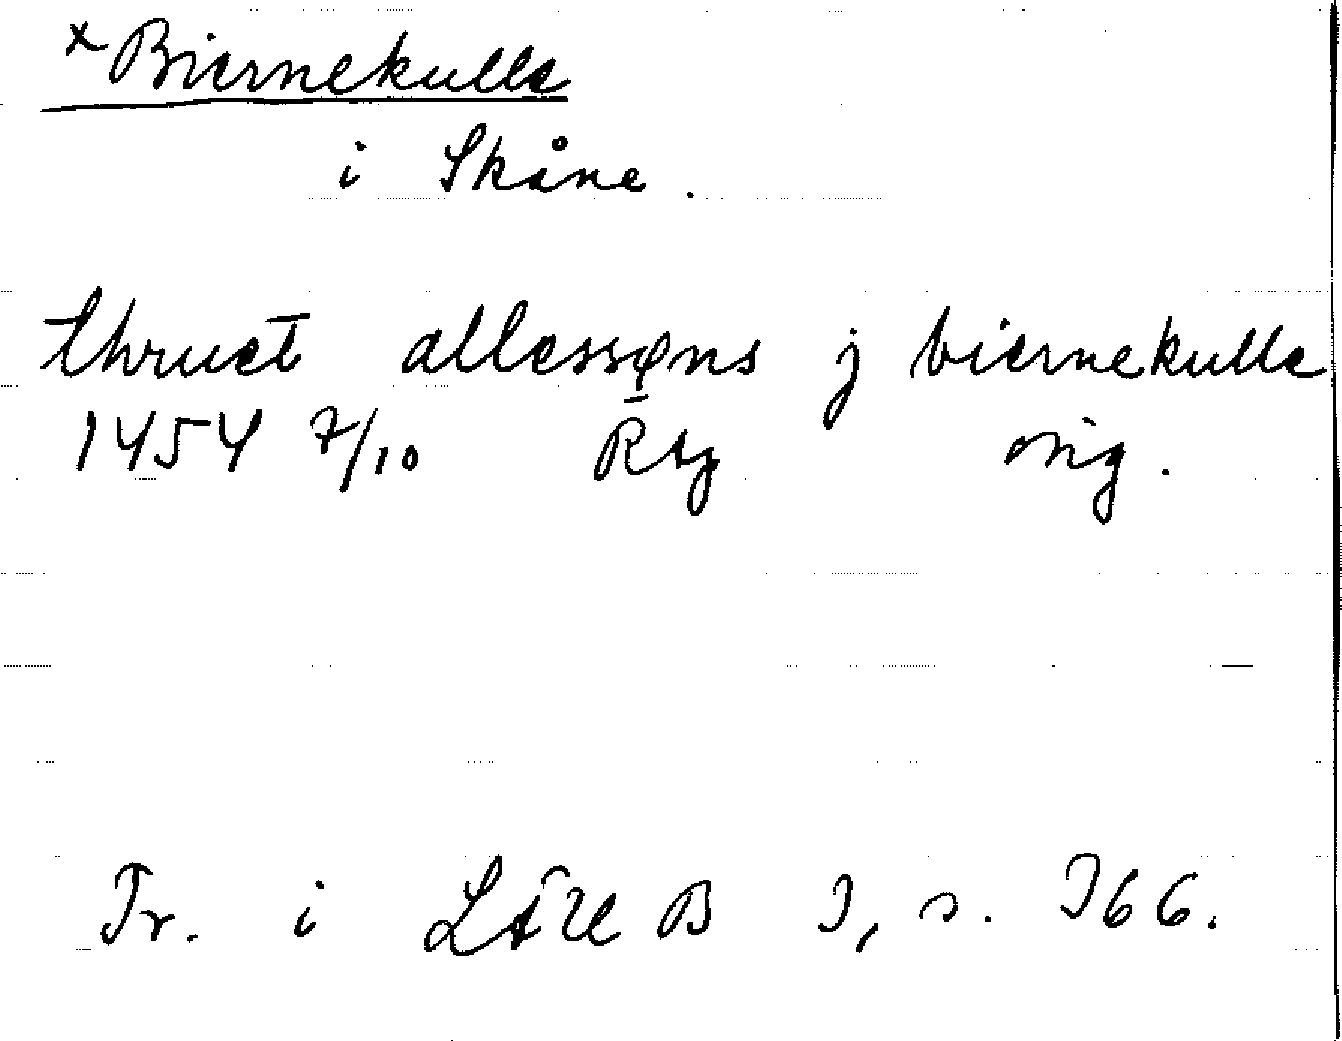 x Biernekulle
i Skåne.
thruet allessøns j biernekulle
1454 7/10 R̄ty orig.
Tr. i B I, s. 366.